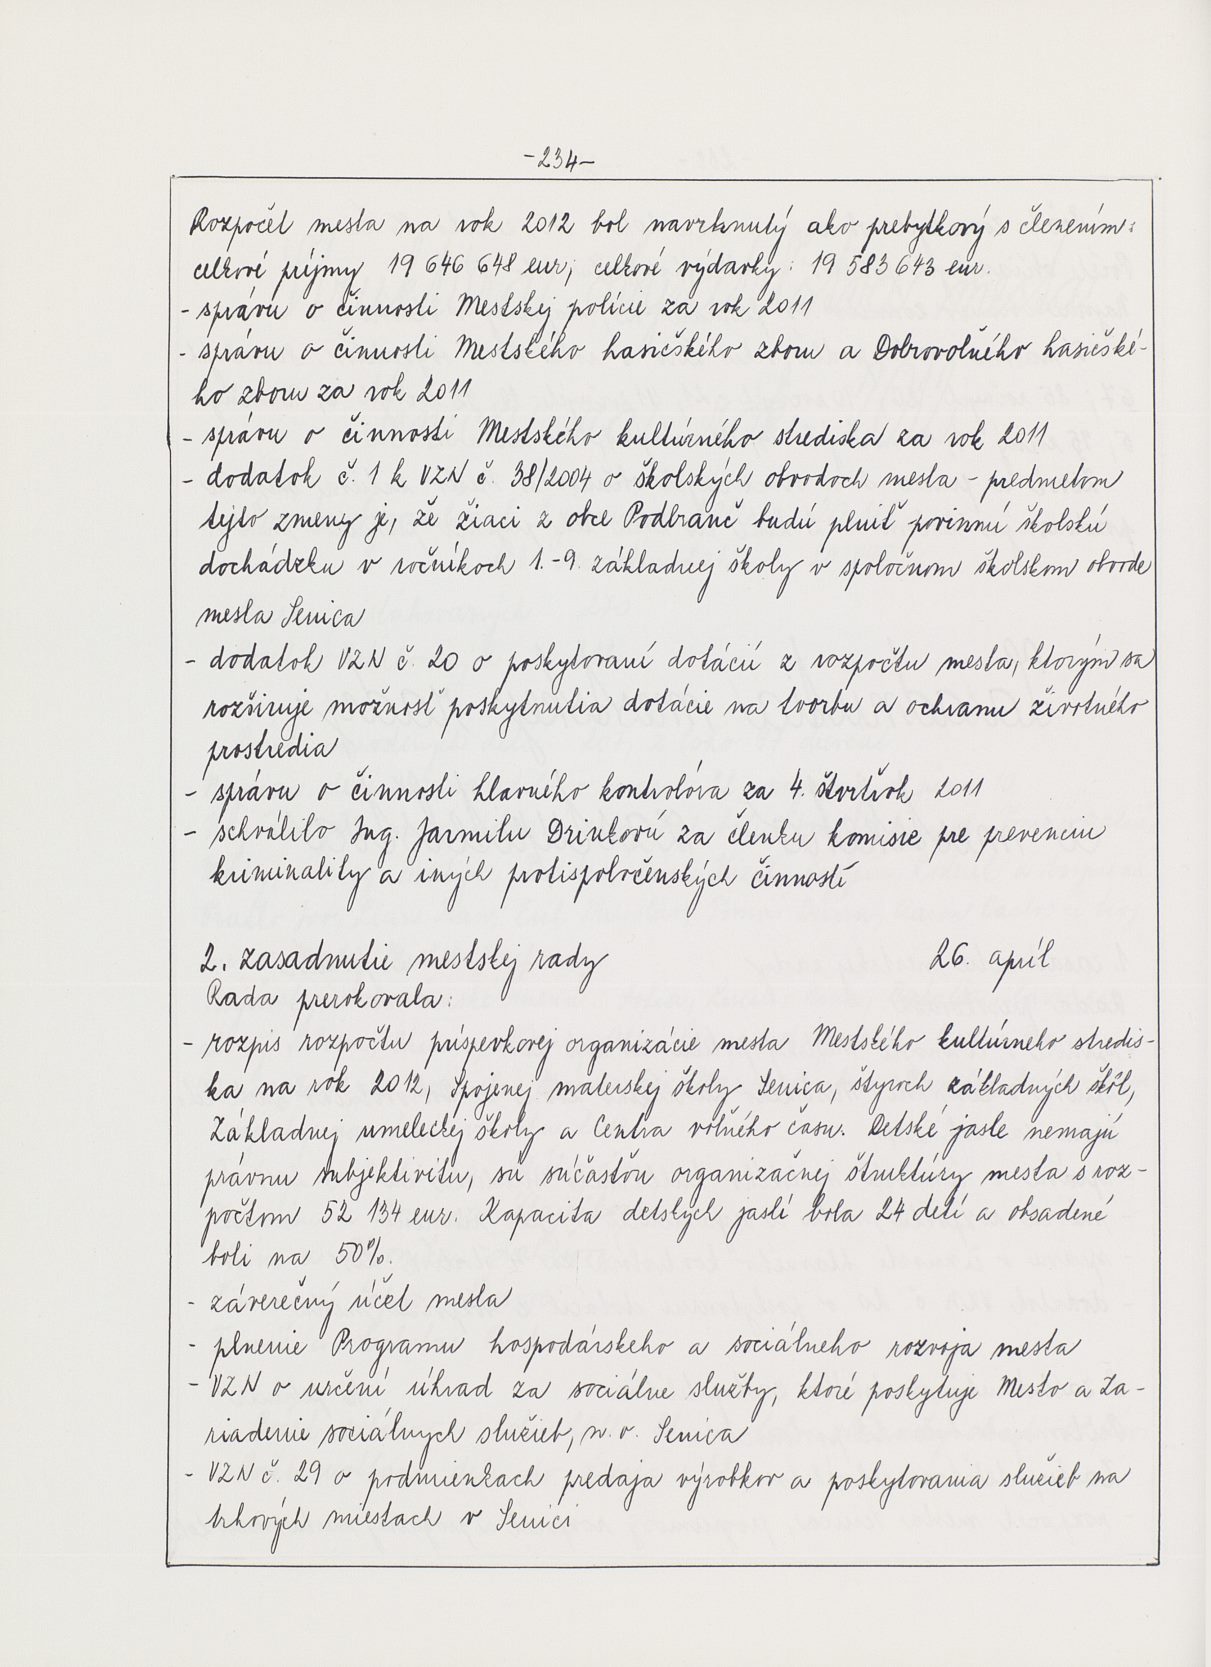 -234-
Rozpočet mesta na rok 2012 bol navrhnutý ako prebytkový s členením:
celkové príjmy 19 646 648 eur, celkové výdavky: 19 583 643 eur.
- správu o činnosti Mestskej polície za rok 2011
- správu o činnosti Mestského hasičského zboru a Dobrovoľného hasičské-
ho zboru za rok 2011
- správu o činnosti Mestského kultúrného strediska za rok 2011
- dodatok č. 1 k VZN č. 38/2004 o školských obvodoch mesta - predmetom
tejto zmeny je, že žiaci z obce Podbranč budú plniť povinnú školskú
dochádzku v ročníkoch 1.-9. základnej školy v spoločnom školskom obvode
mesta Senica
- dodatok VZN č. 20 o poskytovaní dotácií z rozpočtu mesta, ktorým sa
rozširuje možnosť poskytnutia dotácie na tvorbu a ochranu životného
prostredia
- správu o činnosti hlavného kontrolóra za 4. štvrťrok 2011
- schválilo Ing. Jarmilu Drinkovú za členku komisie pre prevenciu
kriminality a iných protispoločenských činností
2. zasadnutie mestskej rady 26. apríl
Rada prerokovala:
- rozpis rozpočtu príspevkovej organizácie mesta Mestského kultúrneho stredis-
ka na rok 2012, Spojenej materskej školy Senica, štyroch základných škôl,
Základnej umeleckej školy a Centra voľného času. Detské jasle nemajú
právnu subjektivitu, sú súčasťou organizačnej štruktúry mesta s roz-
počtom 52 134 eur. Kapacita detských jaslí bola 24 detí a obsadené
boli na 50%.
- záverečný účet mesta
- plnenie Programu hospodárskeho a sociálneho rozvoja mesta
- VZN o určení úhrad za sociálne služby, ktoré poskytuje Mesto a Za-
riadenie sociálnych služieb, n. o. Senica
- VZN č. 29 o podmienkach predaja výrobkov a poskytovania služieb na
trhových miestach v Senici